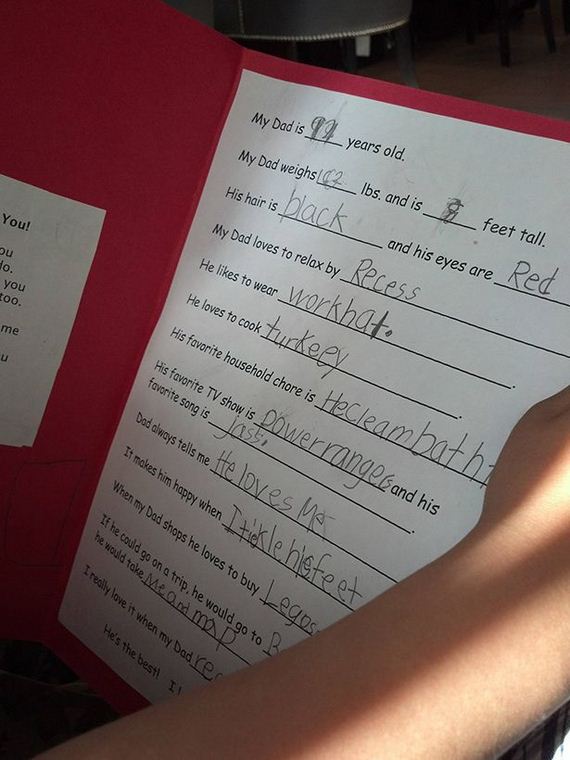 You!
ou
do.
you
too.
me
u
My Dad is years old.
My Dad weighs lbs. and is feet tall.
His hair is black and his eyes are Red
My Dad loves to relax by Recess
He likes to wear workhat.
He loves to cook turkeey.
His favorite household chore is Hecleambath
His favorite TV show is powerranges and his
favorite song is jass.
Dad always tells me He loves Me.
It makes him happy when I tickle his feet
When my Dad shops he loves to buy Legos
If he could go on a trip, he would go to
he would take Me and map
I really love it when my Dad rea
He's the best! I